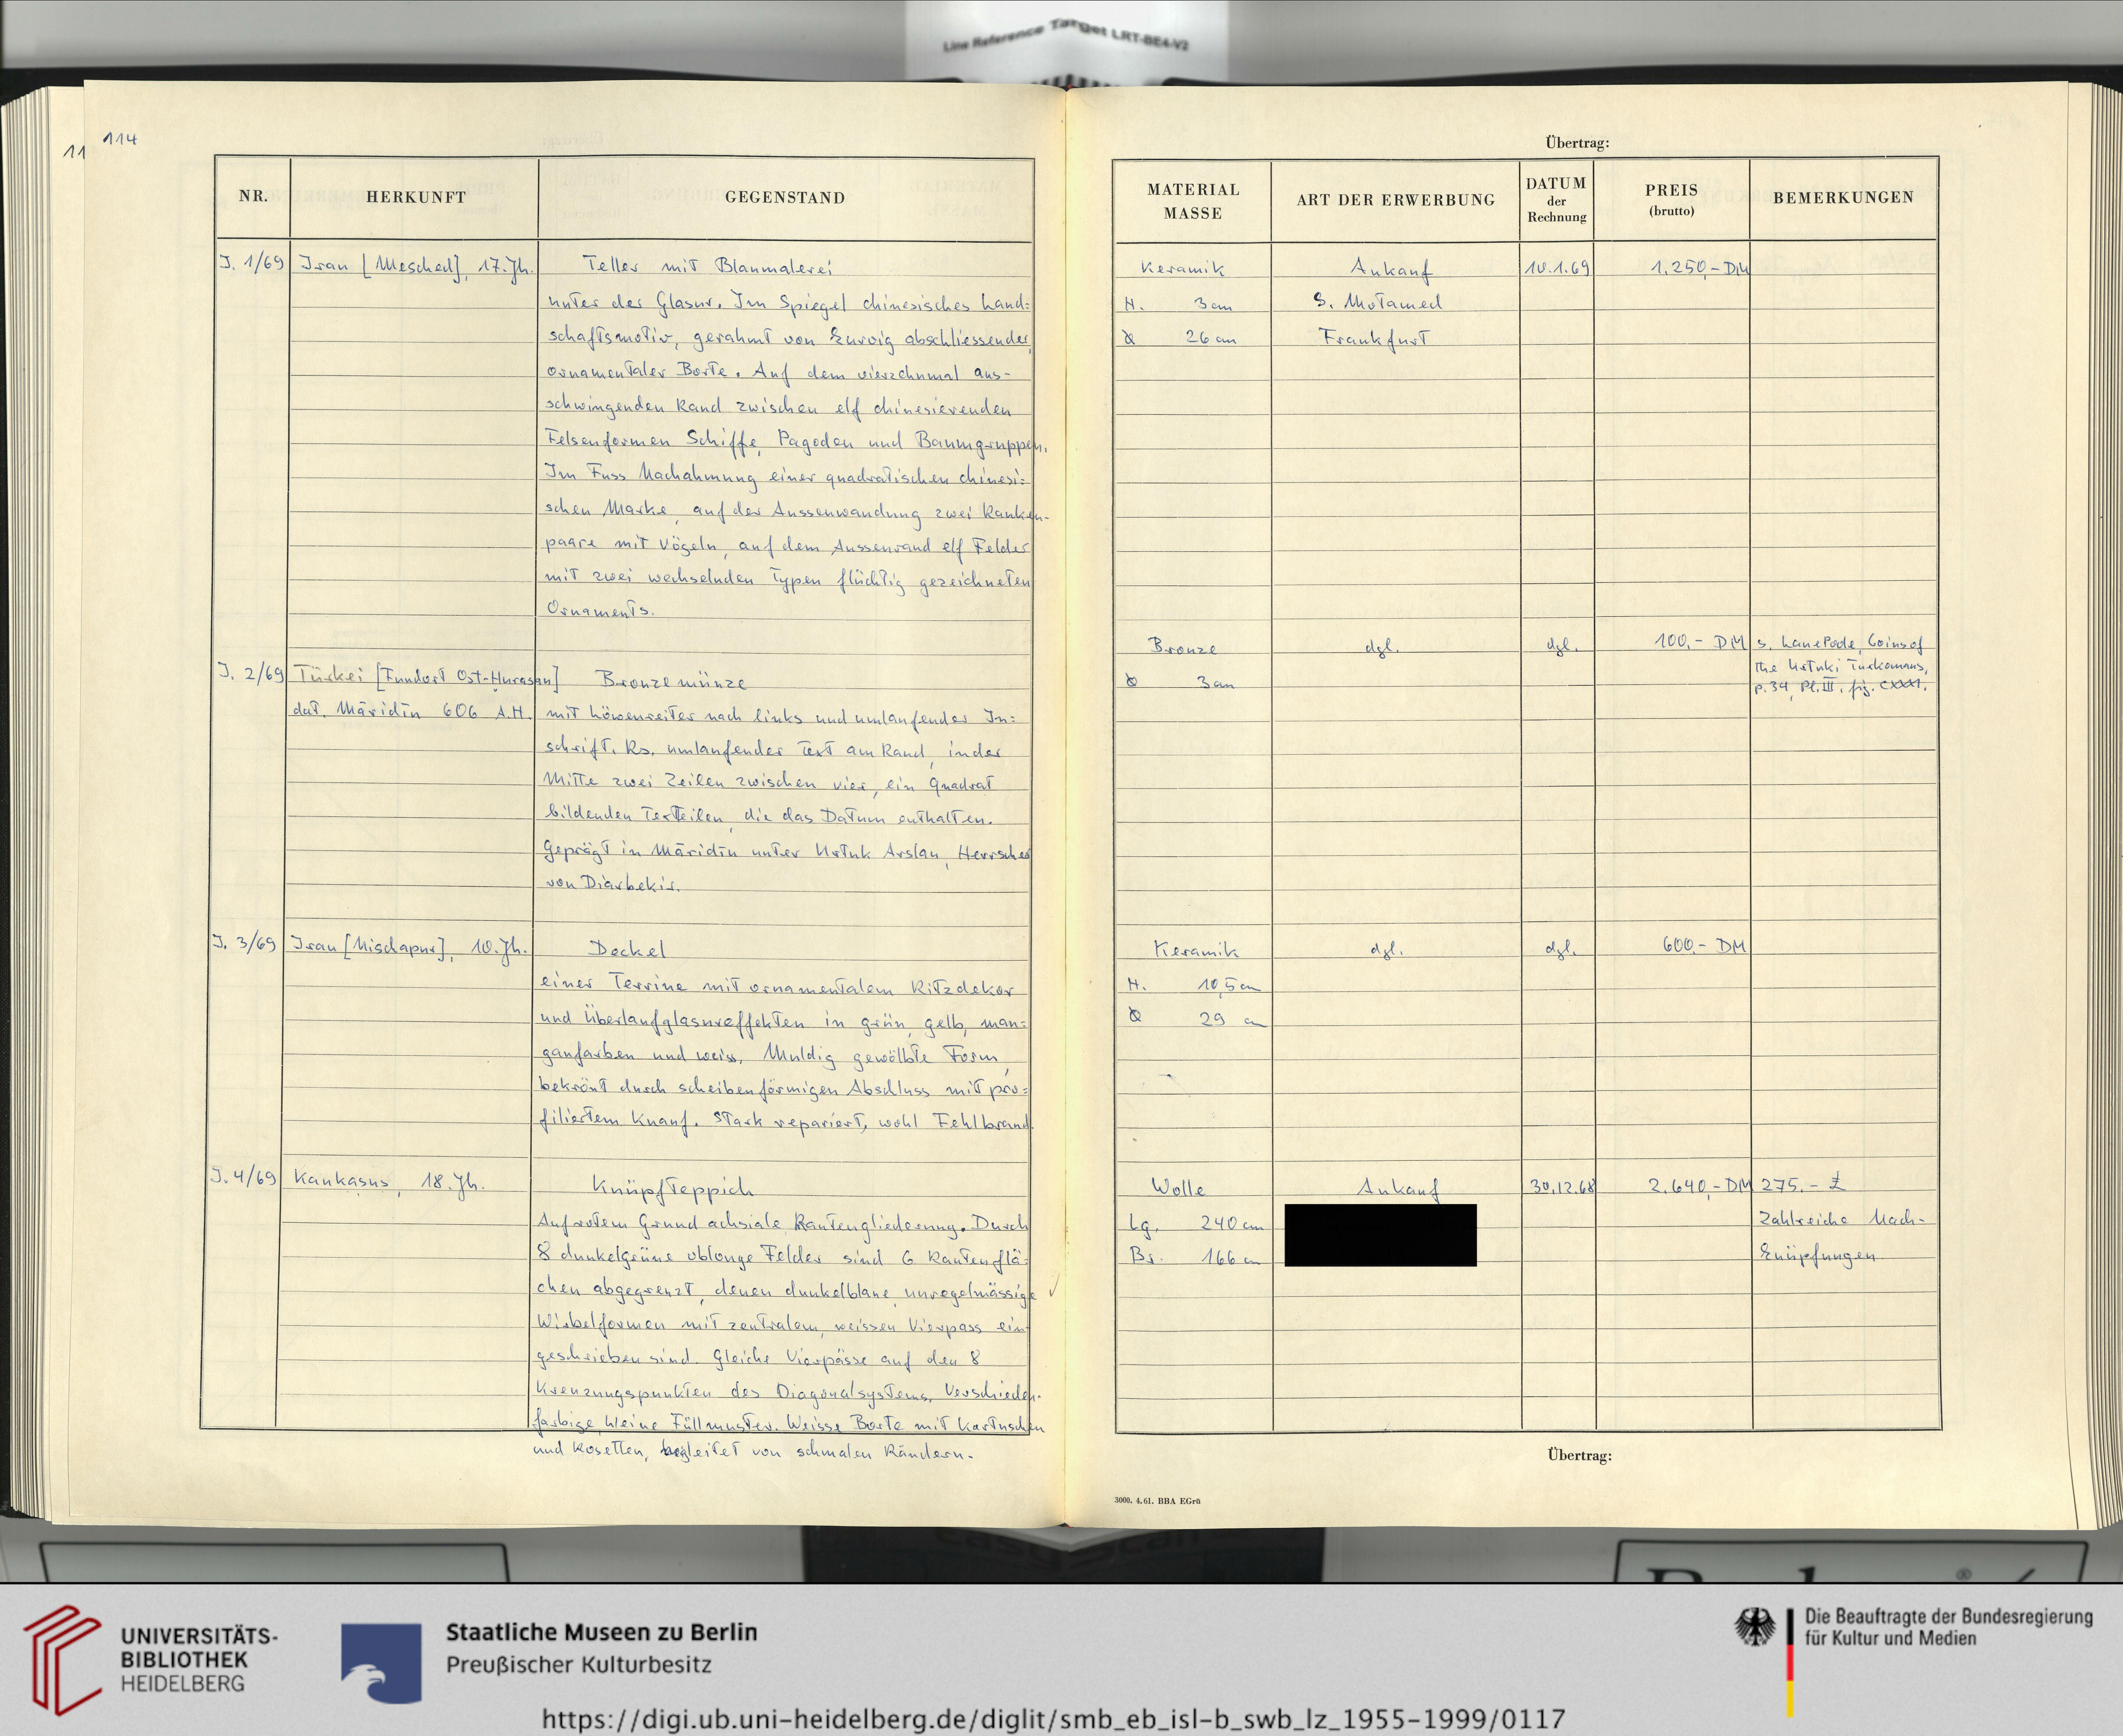 Line Reference Target LRT-BE4-V2
11
114
NR.
HERKUNFT
GEGENSTAND
J. 1/69
Iran [Mesched], 17. Jh.
Teller mit Blaumalerei
unter der Glasur. Im Spiegel chinesisches Land=
schaftsmotiv, gerahmt von kurvig abschliessender,
ornamentaler Borte. Auf dem vierzehnmal aus-
schwingenden Rand zwischen elf chinesierenden
Felsenformen Schiffe, Pagoden und Baumgruppen.
Im Fuss Nachahmung einer quadratischen chinesi=
schen Marke, auf der Aussenwandung zwei Ranken-
paare mit Vögeln, auf dem Aussenrand elf Felder
mit zwei wechselnden Typen flüchtig gezeichneten
Ornaments.
J. 2/69
Türkei [Fundort Ost-Hurasan]
dat. Māridīn 606 A.H.
Bronzemünze
mit Löwenreiter nach links und umlaufender In=
schrift. Rs. umlaufender Text am Rand, in der
Mitte zwei Zeilen zwischen vier, ein Quadrat
bildenden Textteilen, die das Datum enthalten.
Geprägt in Māridīn unter Urtuk Arslan, Herrscher
von Diarbekir.
J. 3/69
Iran [Nischapur], 10. Jh.
Deckel
einer Terrine mit ornamentalem Ritzdekor
und Überlaufglasureffekten in grün, gelb, man=
ganfarben und weiss. Muldig gewölbte Form,
bekrönt durch scheibenförmigen Abschluss mit pro=
filiertem Knauf. Stark repariert, wohl Fehlbrand.
J. 4/69
Kaukasus, 18. Jh.
Knüpfteppich
Auf rotem Grund achsiale Rautengliederung. Durch
8 dunkelgrüne oblonge Felder sind 6 Rautenflä=
chen abgegrenzt, denen dunkelblaue, unregelmässige
Wirbelformen mit zentralem, weissen Vierpass ein
geschrieben sind. Gleiche Vierpässe auf den 8
Kreuzungspunkten des Diagonalsystems. Verschieden-
farbige kleine Füllmuster. Weisse Borte mit Kartuschen
und Rosetten, begleitet von schmalen Rändern.
Übertrag:
MATERIAL
MASSE
ART DER ERWERBUNG
DATUM
der
Rechnung
PREIS
(brutto)
BEMERKUNGEN
Keramik
H. 3 cm
Ø 26 cm
Ankauf
S. Motamed
Frankfurt
10.1.69
1.250,- DM
Bronze
Ø 3 cm
dgl.
dgl.
100,- DM
s. Lane Poole, Coins of
the Urtuki Turkomans,
p. 34, Pl. III, fig. CXXXI.
Keramik
H. 10,5 cm
Ø 29 cm
dgl.
dgl.
600,- DM
Wolle
Lg. 240 cm
Br. 166 cm
Ankauf
30.12.68
2.640,- DM
275.- £
Zahlreiche Nach-
knüpfungen
Übertrag:
3000. 4. 61. BBA EGrü
UNIVERSITÄTS-
BIBLIOTHEK
HEIDELBERG
Staatliche Museen zu Berlin
Preußischer Kulturbesitz
Die Beauftragte der Bundesregierung
für Kultur und Medien
https://digi.ub.uni-heidelberg.de/diglit/smb_eb_isl-b_swb_lz_1955-1999/0117